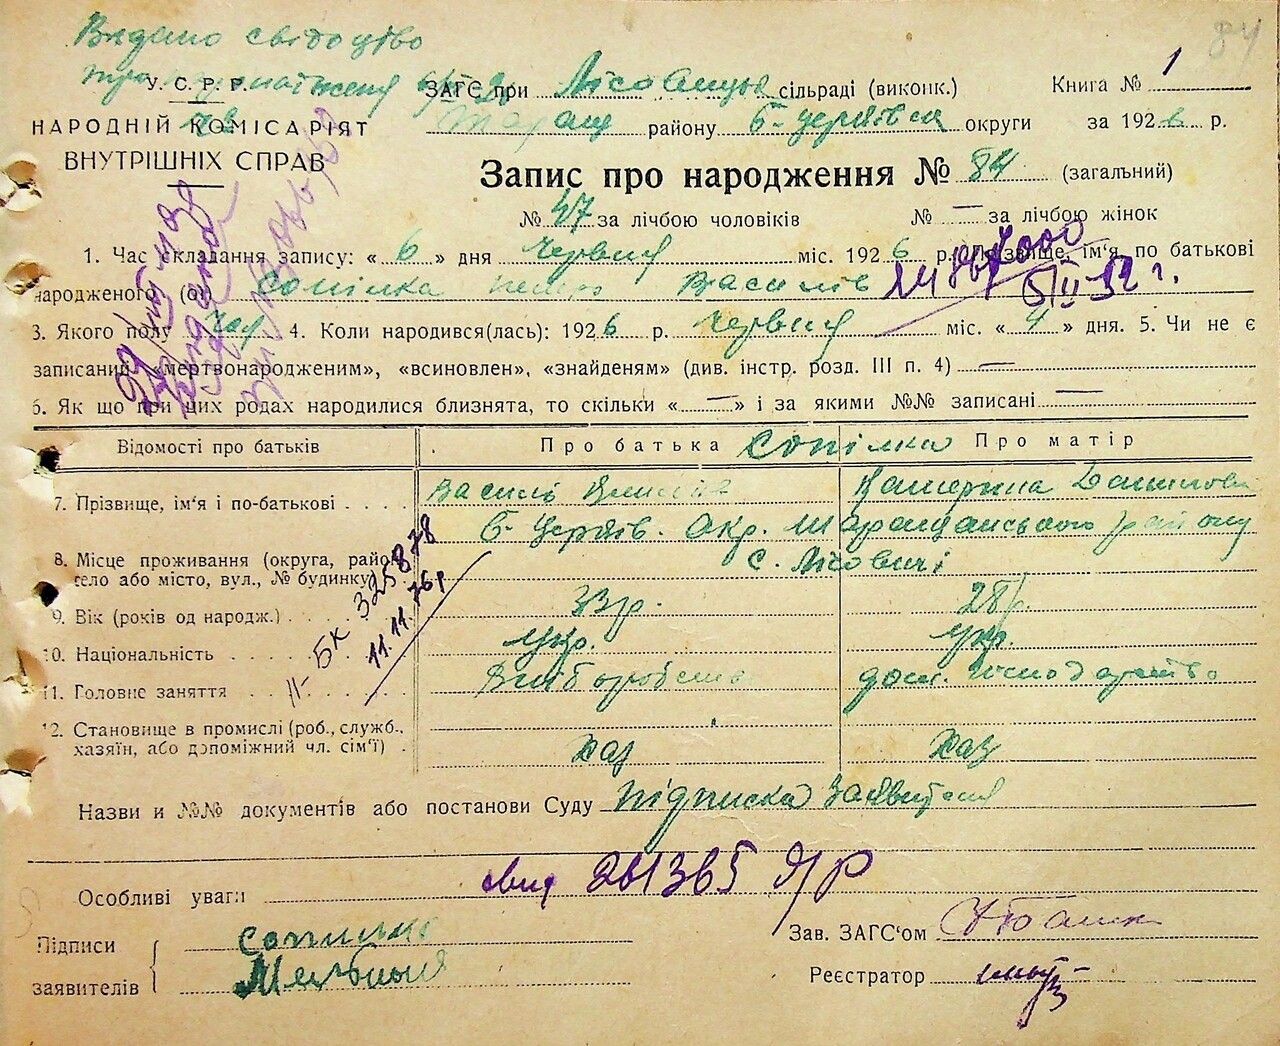 84
Видано свідоцтво
У. С. Р. Р.
НАРОДНІЙ КОМІСАРІЯТ
ВНУТРІШНІХ СПРАВ
ЗАГС при сільраді (виконк.) Книга № 1
Таращ району Б-Церківськ округи за 1926 р.
Запис про народження № 84 (загальний)
№ 47 за лічбою чоловіків № — за лічбою жінок
1. Час складання запису: « 6 » дня Червня міс. 1926 р. Прізвище, ім'я, по батькові
народженого (ої) Сопілка Петро Василів
3. Якого полу Чол 4. Коли народився(лась): 1926 р. Червня міс. « 4 » дня. 5. Чи не є
записаний «мертвонародженим», «всиновлен», «знайденям» (див. інстр. розд. III п. 4) —
6. Як що при цих родах народилися близнята, то скільки « — » і за якими №№ записані —
Відомості про батьків Про батька Сопілка Про матір
7. Прізвище, ім'я і по-батькові Василь Катерина
8. Місце проживання (округа, район, село або місто, вул., № будинку) Б-Церків. Окр. Таращанського району
с. Лісовичі
9. Вік (років од народж.) 33 р. 28 р.
10. Національність Укр. Укр.
11. Головне заняття Хліборобство дом. господарство
12. Становище в промислі (роб., служб.,
хазяїн, або допоміжний чл. сім'ї) Хаз Хаз
II-БК 325878
11.11.76 р
Назви и №№ документів або постанови Суду Підписка Заявителя
Особливі уваги 261365
Підписи
заявителів
Зав. ЗАГС'ом
Реєстратор